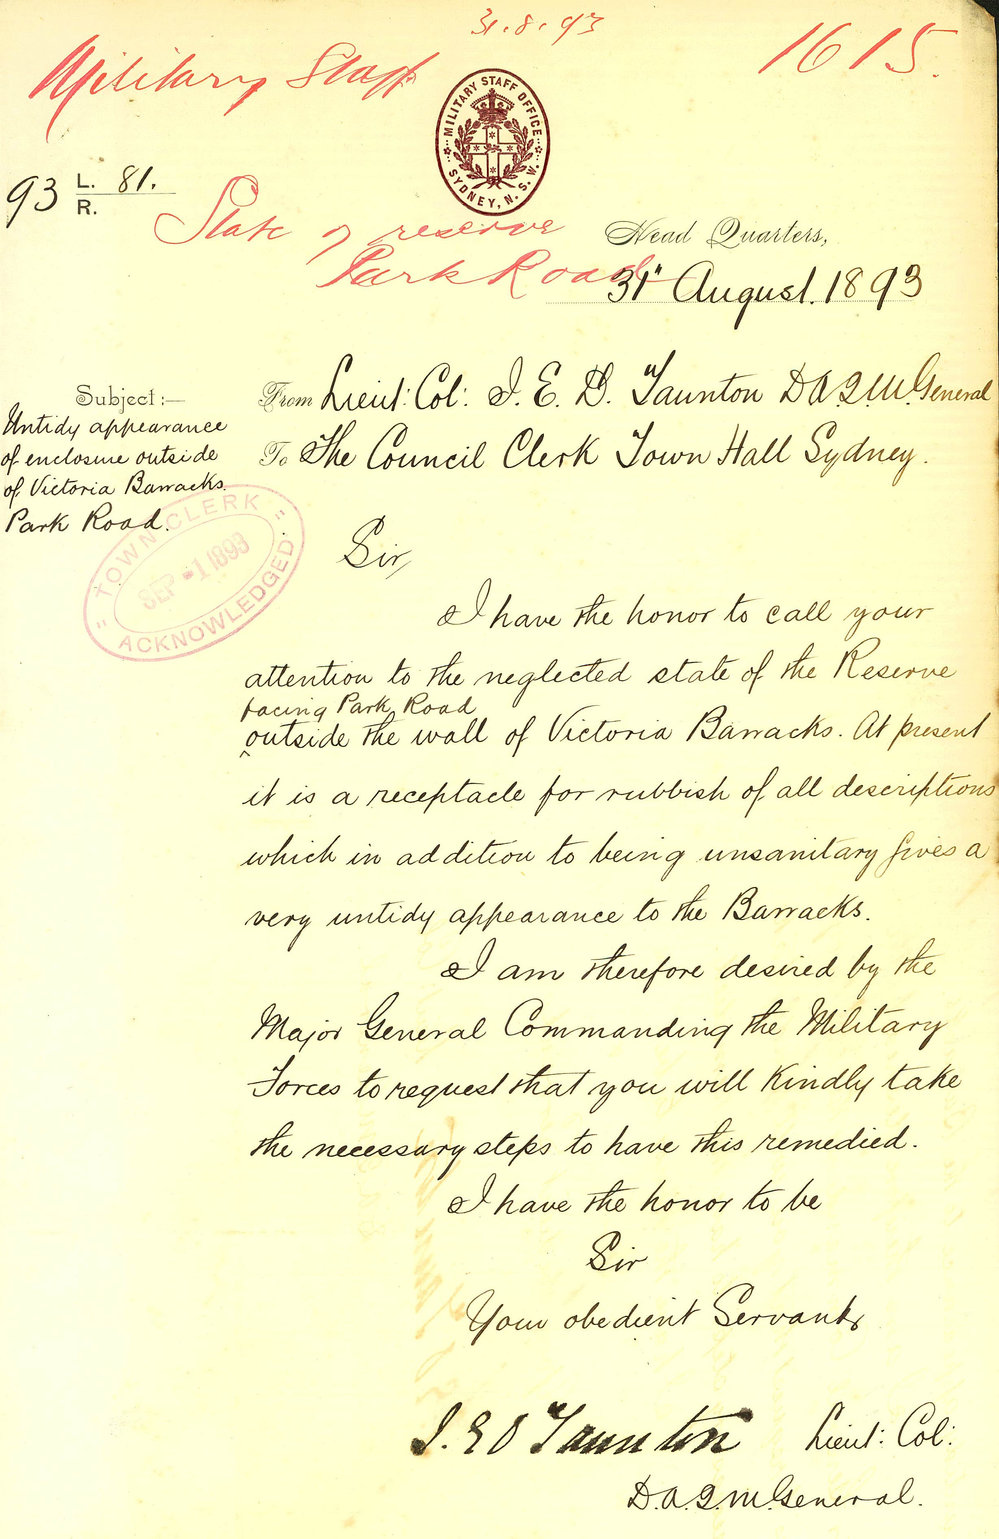 31.8.93
1615.
Military Staff
MILITARY STAFF OFFICE
SYDNEY, N.S.W.
93 L. 81.
R.
State of reserve
Park Road
Head Quarters,
31st August. 1893
Subject:—
Untidy appearance
of enclosure outside
of Victoria Barracks.
Park Road.
From Lieut: Col: J. E. D. Taunton D A Q M General
To The Council Clerk Town Hall Sydney.
TOWN CLERK
SEP -1 1893
ACKNOWLEDGED
Sir,
I have the honor to call your
attention to the neglected state of the Reserve
facing Park Road
^outside the wall of Victoria Barracks. At present
it is a receptacle for rubbish of all descriptions
which in addition to being unsanitary gives a
very untidy appearance to the Barracks.
I am therefore desired by the
Major General Commanding the Military
Forces to request that you will Kindly take
the necessary steps to have this remedied.
I have the honor to be
Sir
Your obedient Servant
J. E D Taunton Lieut: Col:
D.A.Q.M.General.